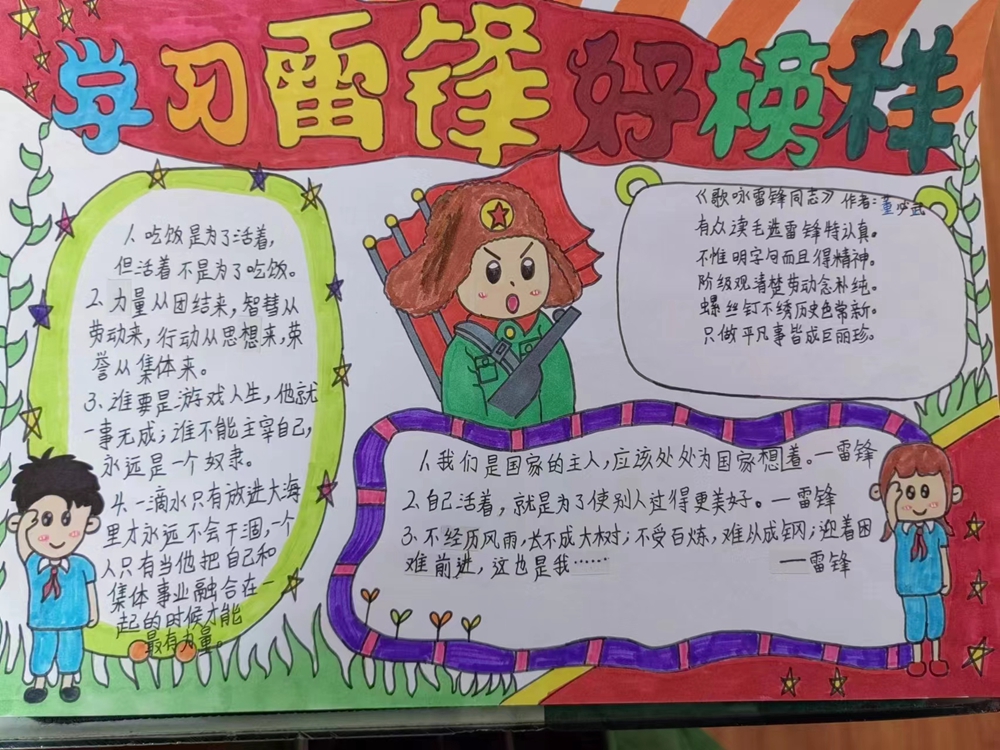 学习雷锋好榜样
1、吃饭是为了活着，
但活着不是为了吃饭。
2、力量从团结来，智彗从
劳动来，行动从思想来，荣
誉从集体来。
3、谁要是游戏人生，他就
一事无成；谁不能主宰自己，
永远是一个奴隶。
4、一滴水只有放进大海
里才永远不会干涸，一个
人只有当他把自己和
集体事业融合在一
起的时候才能
最有力量。
《歌咏雷锋同志》作者：董必武
有众读毛选雷锋特认真。
不惟明字句而且得精神。
阶级观清楚劳动念朴纯。
螺丝钉不绣历史色常新。
只做平凡事皆成巨丽珍。
1、我们是国家的主人，应该处处为国家想着。—雷锋
2、自己活着，就是为了使别人过得更美好。—雷锋
3、不经历风雨，长不成大树；不受百炼，难以成钢；迎着困
难前进，这也是我……
—雷锋